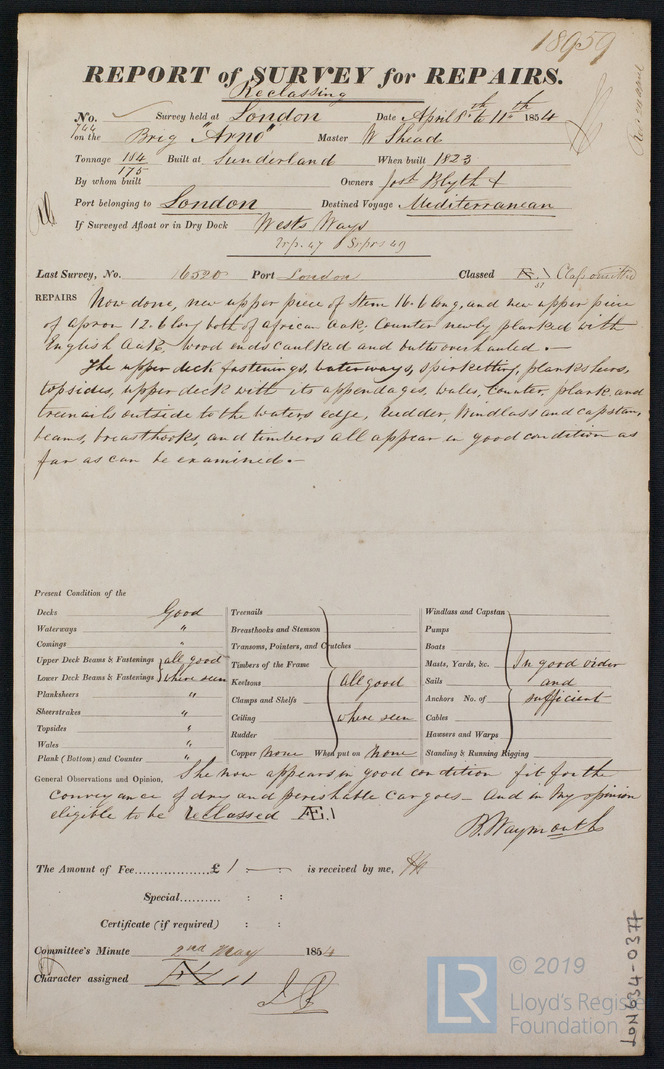 18959
REPORT of SURVEY for REPAIRS.
Reclassing
No. Survey held at London Date April 8th to 11th 1854
744
on the Brig "Arno" Master W Shead
Tonnage 184 Built at Sunderland When built 1823
175
By whom built Owners Josh Blyth &
Port belonging to London Destined Voyage Mediterranean
If Surveyed Afloat or in Dry Dock Wests Ways
Last Survey, No. 16520 Port London Classed Class omitted
REPAIRS Now done, new upper piece of Stem 16.6 long, and new upper piece
of apron 12.6 long both of african Oak. Counter newly planked with
English Oak, Wood ends caulked and butts overhauled.-
The upper deck fastenings, waterways, spirketting, plansheers,
topsides, upper deck with its appendages, wales, Counter, plank and
treenails outside to the waters edge, Rudder, Windlass and capstan,
beams, breasthooks, and timbers all appear in good condition as
far as can be examined.-
Present Condition of the
Decks Good
Waterways "
Comings "
Upper Deck Beams & Fastenings all good
Lower Deck Beams & Fastenings where seen
Planksheers "
Sheerstrakes "
Topsides "
Wales "
Plank (Bottom) and Counter "
Treenails
Breasthooks and Stemson
Transons, Pointers, and Crutches
Timbers of the Frame
Keelsons all good
Clamps and Shelfs
Ceiling where seen
Rudder
Copper None When put on None
Windlass and Capstan
Pumps
Boats
Masts, Yards, &c. In good order
Sails and
Anchors No. of sufficient
Cables
Hawsers and Warps
Standing & Running Rigging
General Observations and Opinion, She now appears in good condition fit for the
conveyance of dry and perishable cargoes - and in my opinion
eligible to be reclassed Æ1
B. Waymouth
The Amount of Fee...................£ 1 is received by me,
Special.......... : :
Certificate (if required) : :
Committee's Minute 2nd May 1854
Character assigned
© 2019
Lloyd's Register
Foundation
LR
LON634-0377